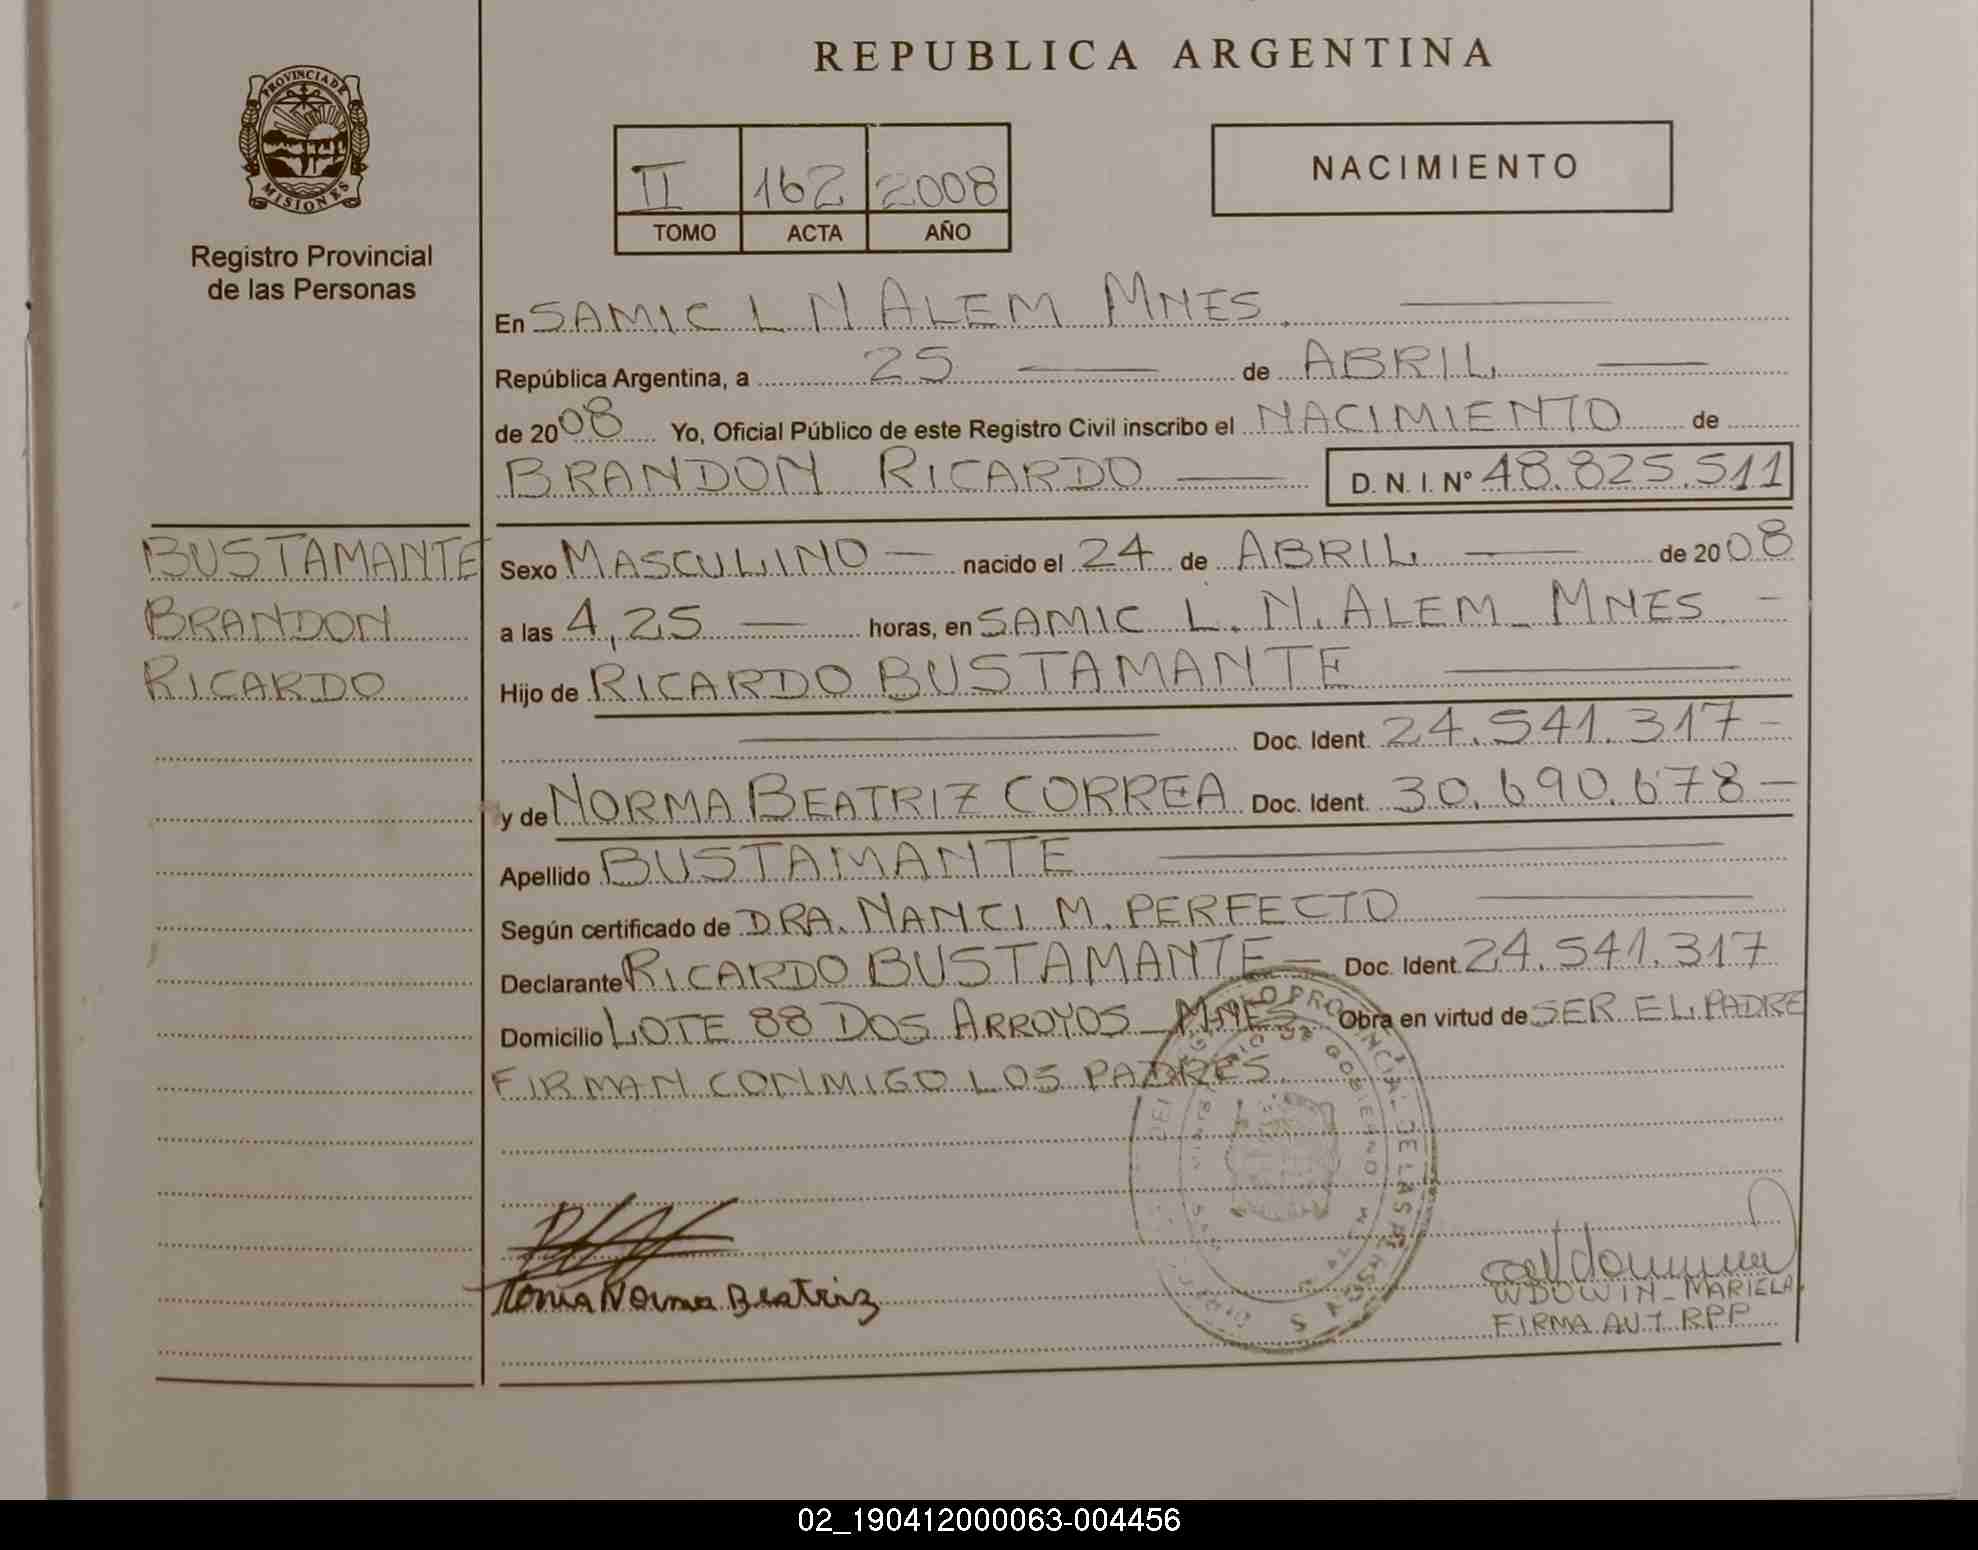 REPUBLICA ARGENTINA
PROVINCIA DE
MISIONES
Registro Provincial
de las Personas
II 162 2008
TOMO ACTA AÑO
NACIMIENTO
En SAMIC L N ALEM MNES
República Argentina, a 25 de ABRIL
de 2008 Yo, Oficial Público de este Registro Civil inscribo el NACIMIENTO de
BRANDON RICARDO D. N. I. N° 48.825.511
BUSTAMANTE
BRANDON
RICARDO
Sexo MASCULINO nacido el 24 de ABRIL de 2008
a las 4,25 horas, en SAMIC L. N. ALEM - MNES
Hijo de RICARDO BUSTAMANTE
Doc. Ident. 24.541.317
y de NORMA BEATRIZ CORREA Doc. Ident. 30.690.678
Apellido BUSTAMANTE
Según certificado de DRA. NANCI M. PERFECTO
Declarante RICARDO BUSTAMANTE Doc. Ident. 24.541.317
Domicilio LOTE 88 DOS ARROYOS - MNES Obra en virtud de SER EL PADRE
FIRMAN CONMIGO LOS PADRES
PROVINCIAL DE LAS
GOBIERNO
Norma Beatriz
WDOWIN - MARIELA
FIRMA AUT RPP
02_190412000063-004456